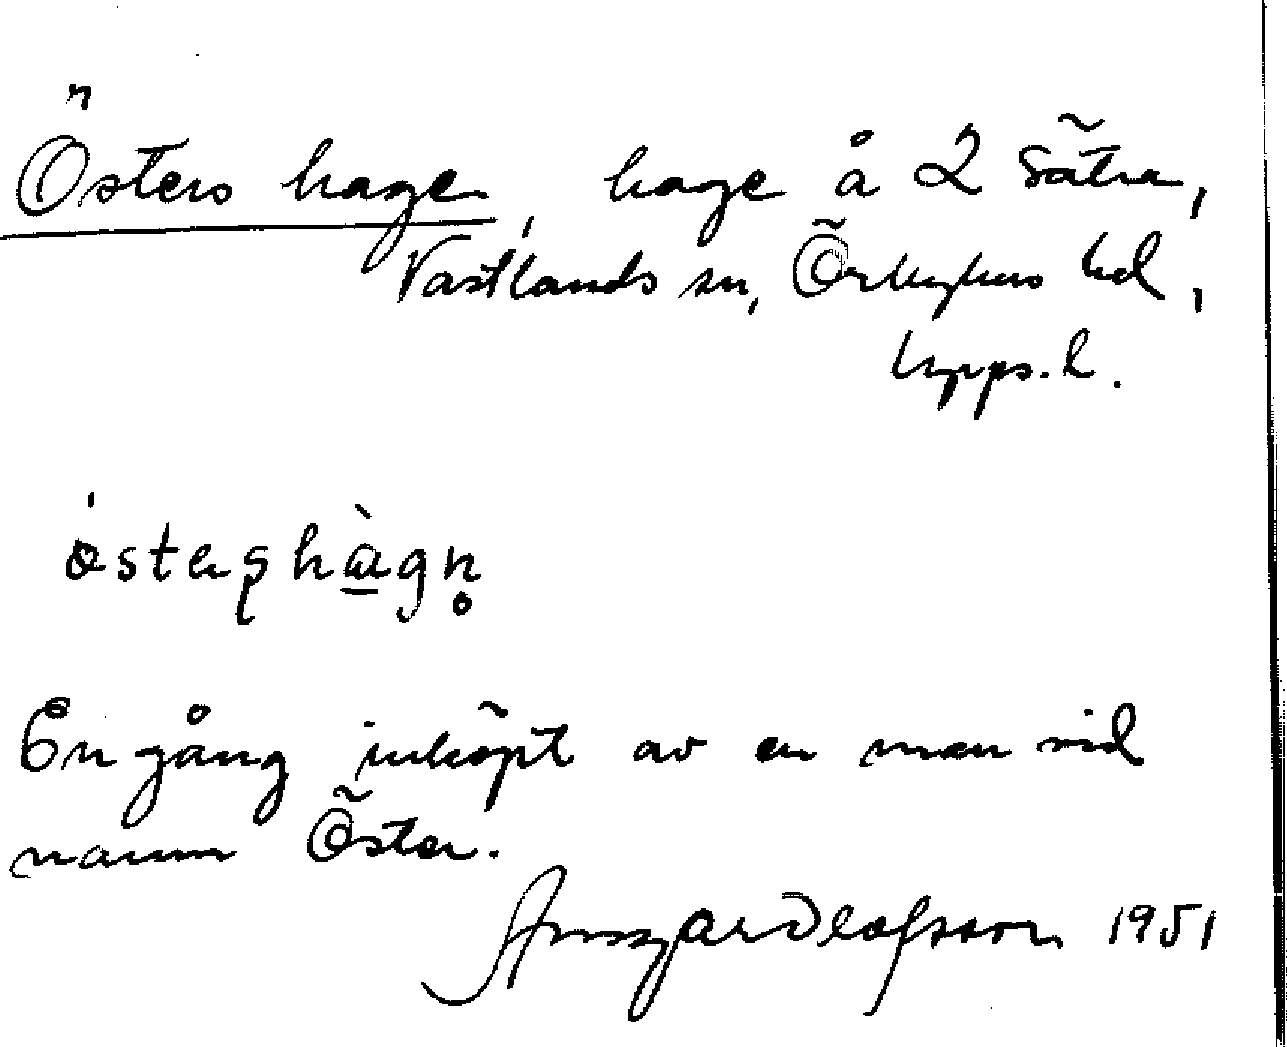 Östers hage, hage å 2 Sätra,
Västlands sn, Örbyhus hd,
Upps. l.
östeʂhàgn̥
En gång inköpt av en man vid
namn Öster.
Olofsson 1951